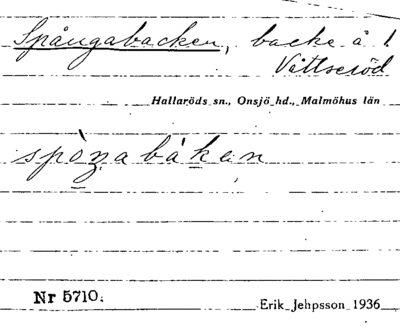 Spångabacken, backe å 1.
Vittseröd
Hallaröds sn., Onsjö hd., Malmöhus län
spòŋabàken
Nr 5710.
Erik Jehpsson 1936